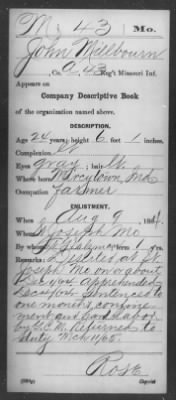 M. 43 Mo.
John Millbourn
, Co. C, 43 Reg't Missouri Inf.
Appears on
Company Descriptive Book
of the organization named above.
DESCRIPTION.
Age 24 years; height 6 feet 1 inches.
Complexion Lt
Eyes gray; hair Lt.
Where born
Occupation Farmer
ENLISTMENT.
When Aug 9, 1864.
Where St Joseph Mo
By term 1 y'rs.
Remarks: Deserted at St
Joseph Mo on or about
Apprehended
Sentenced to
one month's confine
ment and hard labor
by G.C.M. Returned to
duty Mch 1/65.
Rose
Copyist